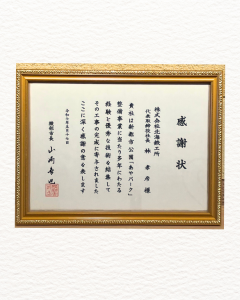 感謝状
株式会社北海鉄工所
代表取締役社長 林 孝彦 様
貴社は新都市公園「あやパーク」
整備事業に当たり多年にわたる
経験と優秀な技術を結集して
その工事の完成に寄与されました
ここに深く感謝の意を表します
令和七年五月十七日
綾部市長 山崎善也